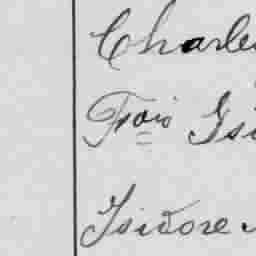 Charle
Frois Isi
Isidore